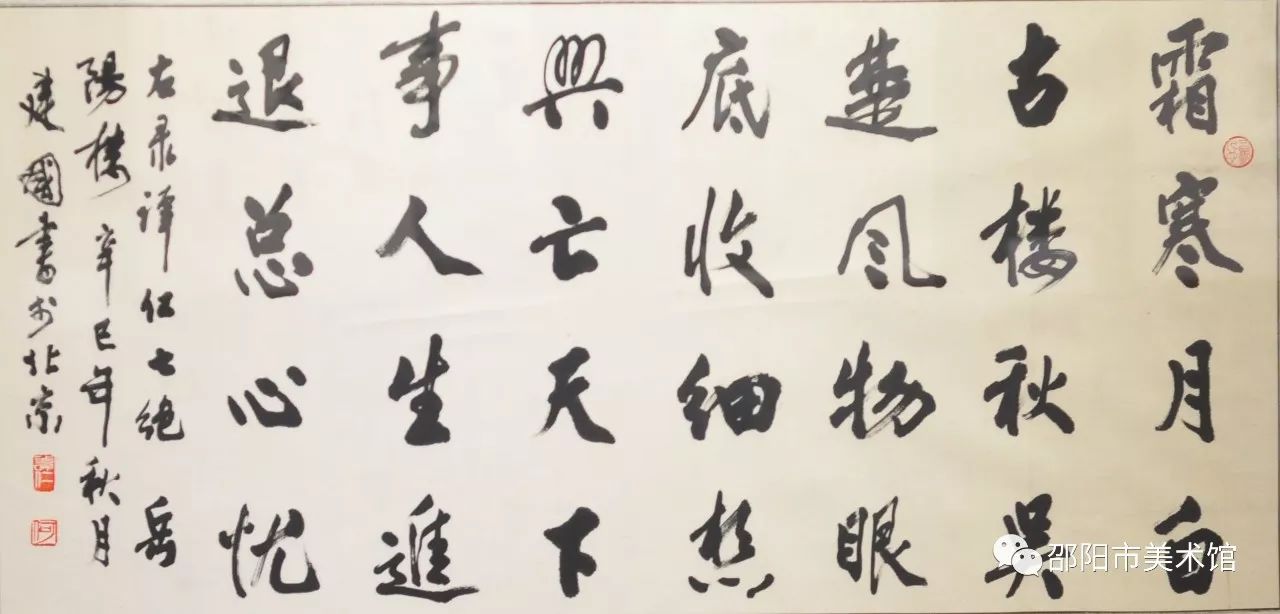 霜寒月白
古楼秋吴
楚风物眼
底收细想
興亡天下
事人生進
退总心忧
右录译仁七绝岳
陽楼辛巳年秋月
建國書于北京
邵阳市美术馆